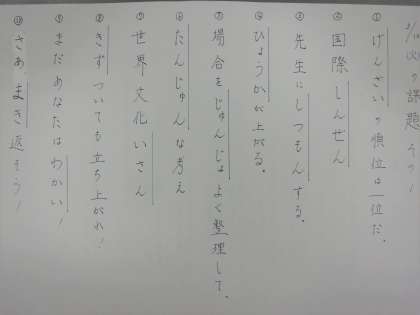 9/10(火)の課題 その1
① げんざいの順位は一位だ。
② 国際しんぜん
③ 先生にしつもんする。
④ ひょうかが上がる。
⑦ 場合をじゅんじょよく整理して、
⑥ たんじゅんな考え
⑤ 世界文化いさん
⑧ きずついても立ち上がれ!
⑨ まだあなたはわかい!
⑩ さあ、まき返そう!